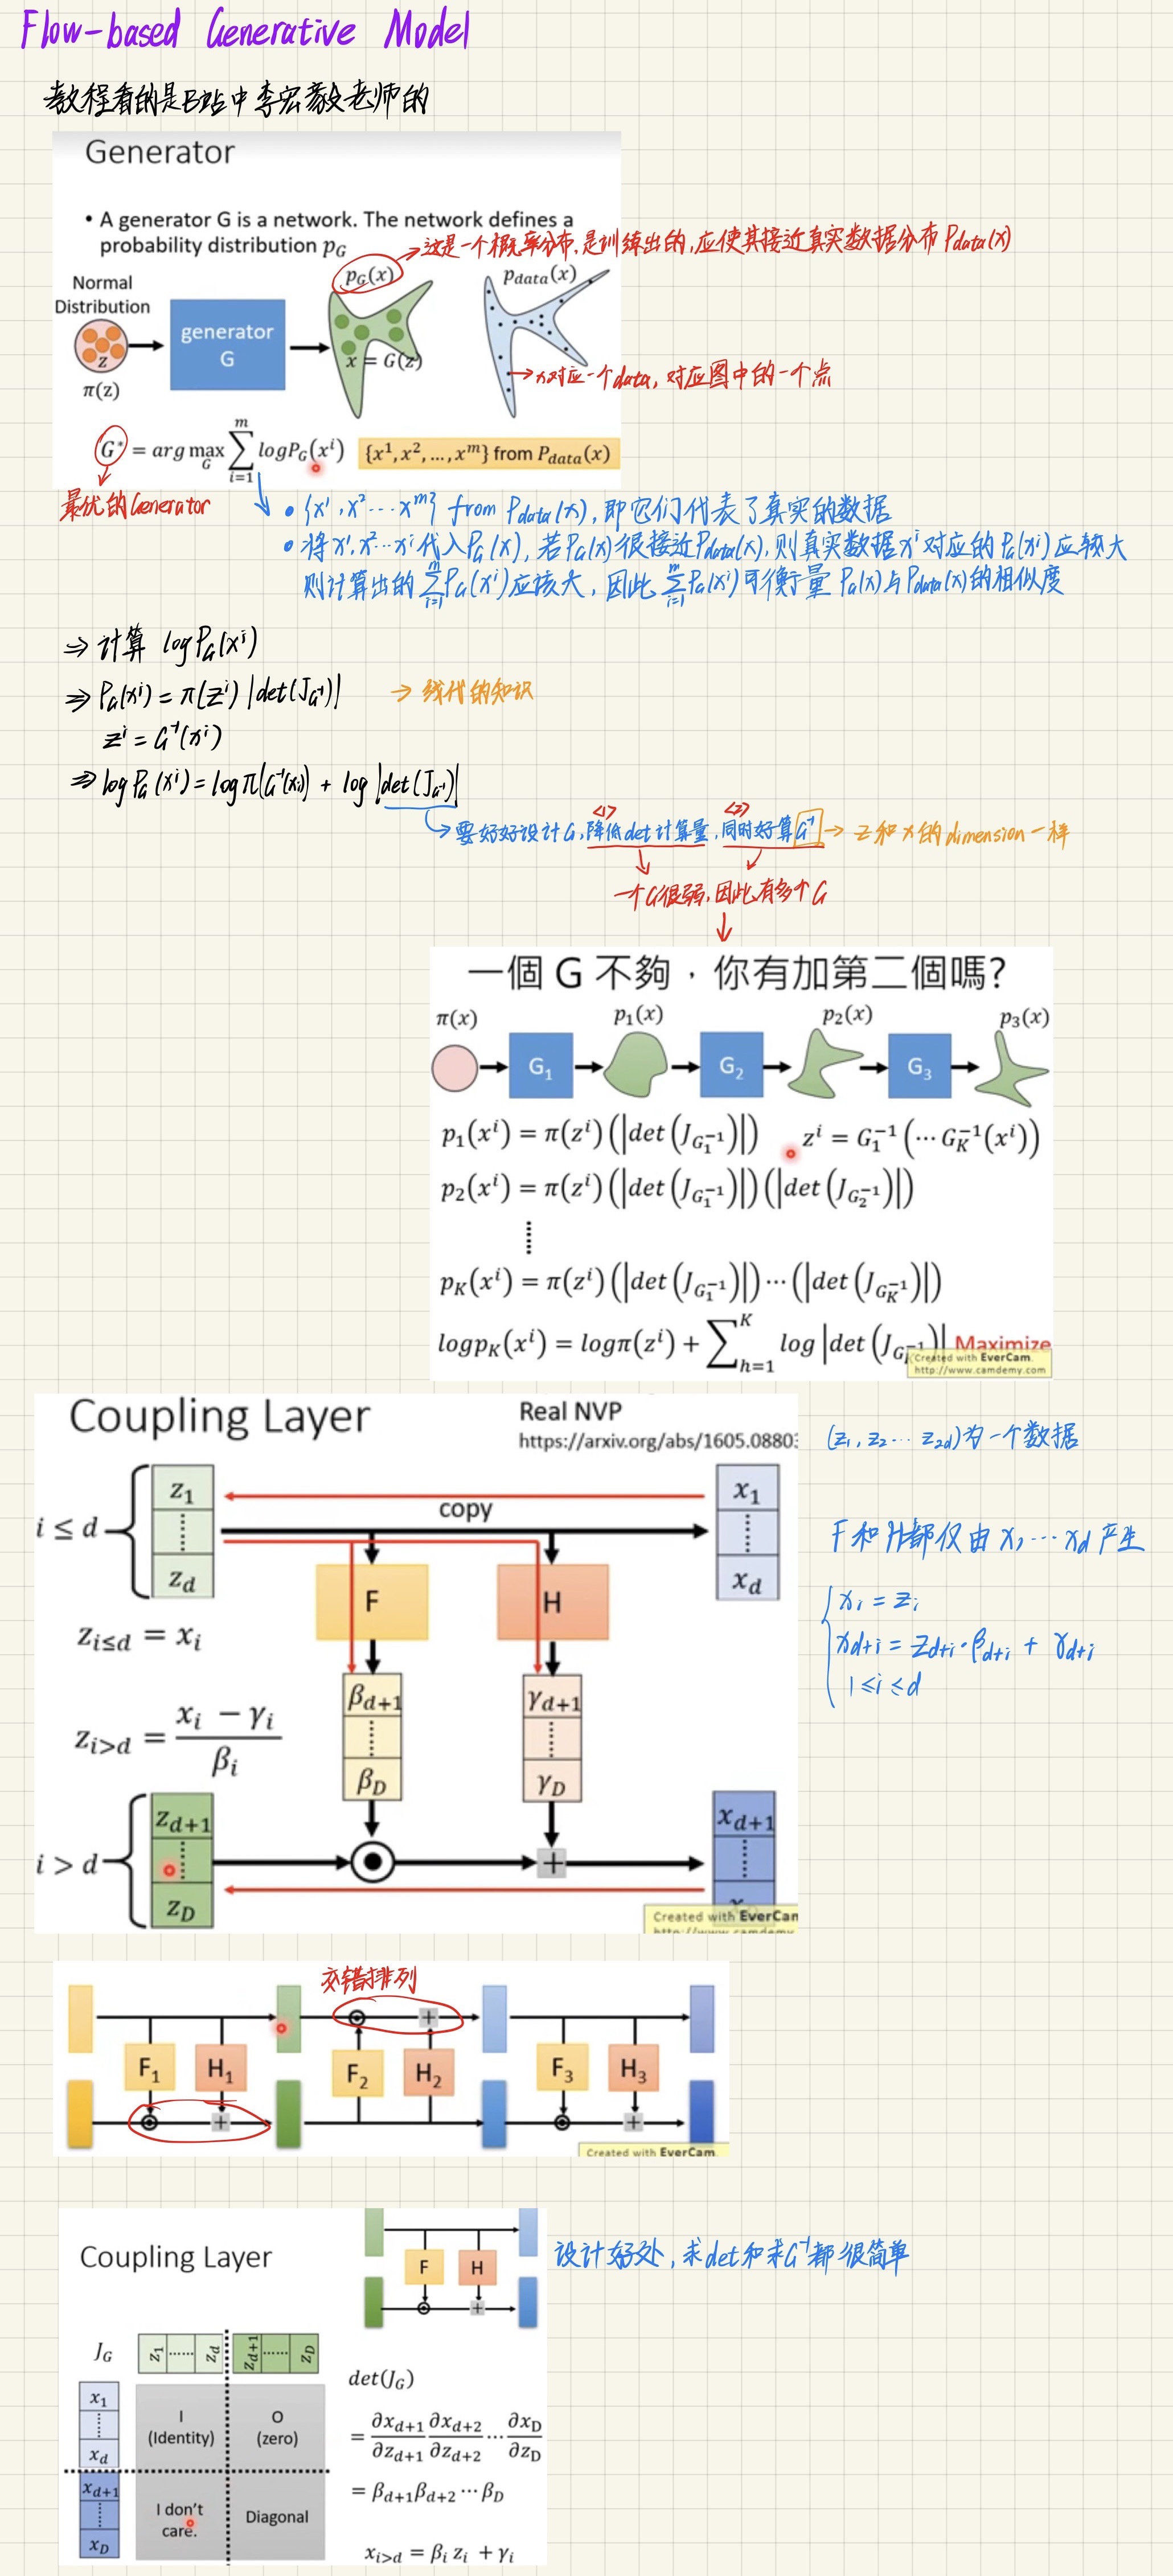 Flow-based Generative Model
教程看的是B站中李宏毅老师的
Generator
• A generator G is a network. The network defines a
probability distribution p_G
这是一个概率分布,是训练出的,应使其接近真实数据分布 Pdata(x)
Normal
Distribution
z
π(z)
generator
G
p_G(x)
x = G(z)
p_data(x)
x对应一个data, 对应图中的一个点
G* = arg max_G ∑_{i=1}^{m} logP_G(x^i)
{x^1, x^2, ..., x^m} from P_data(x)
最优的Generator
• {x^1, x^2 ... x^m} from Pdata(x), 即它们代表了真实的数据
• 将x^1, x^2...x^i代入P_G(x), 若P_G(x)很接近Pdata(x), 则真实数据x^i对应的P_G(x^i)应较大
则计算出的∑_{i=1}^{m}P_G(x^i)应该大, 因此∑_{i=1}^{m}P_G(x^i)可衡量P_G(x)与Pdata(x)的相似度
⇒ 计算 logP_G(x^i)
⇒ P_G(x^i) = π(z^i) |det(J_{G^-1})|
→ 线代的知识
z^i = G^-1(x^i)
⇒ logP_G(x^i) = logπ(G^-1(x^i)) + log|det(J_{G^-1})|
<1> <2>
要好好设计G, 降低det计算量, 同时好算G^-1 → z和x的dimension一样
一个G很弱, 因此有多个G
一個 G 不夠，你有加第二個嗎?
π(x) p_1(x) p_2(x) p_3(x)
G_1 G_2 G_3
p_1(x^i) = π(z^i) (|det(J_{G_1^-1})|) z^i = G_1^-1(⋯G_K^-1(x^i))
p_2(x^i) = π(z^i) (|det(J_{G_1^-1})|) (|det(J_{G_2^-1})|)
p_K(x^i) = π(z^i) (|det(J_{G_1^-1})|) ⋯ (|det(J_{G_K^-1})|)
logp_K(x^i) = logπ(z^i) + ∑_{h=1}^{K} log |det(J_G^-1)| Maximize
Created with EverCam.
http://www.camdemy.com
Coupling Layer
Real NVP
https://arxiv.org/abs/1605.0880
(z_1, z_2 ... z_2d)为一个数据
i ≤ d
z_1
z_d
copy
x_1
x_d
F
H
F和H都仅由x_1...x_d产生
z_{i≤d} = x_i
z_{i>d} = (x_i − γ_i) / β_i
β_{d+1}
β_D
γ_{d+1}
γ_D
x_i = z_i
x_{d+i} = z_{d+i}·β_{d+i} + γ_{d+i}
1≤i≤d
i > d
z_{d+1}
z_D
x_{d+1}
Created with EverCam
交错排列
F_1 H_1 F_2 H_2 F_3 H_3
Created with EverCam.
Coupling Layer
F H
设计好处, 求det和求G^-1都很简单
J_G z_1 ...... z_d z_{d+1} ...... z_D
x_1
x_d
x_{d+1}
x_D
I
(Identity)
O
(zero)
I don't
care.
Diagonal
det(J_G)
= ∂x_{d+1}/∂z_{d+1} ∂x_{d+2}/∂z_{d+2} ⋯ ∂x_D/∂z_D
= β_{d+1}β_{d+2}⋯β_D
x_{i>d} = β_i z_i + γ_i